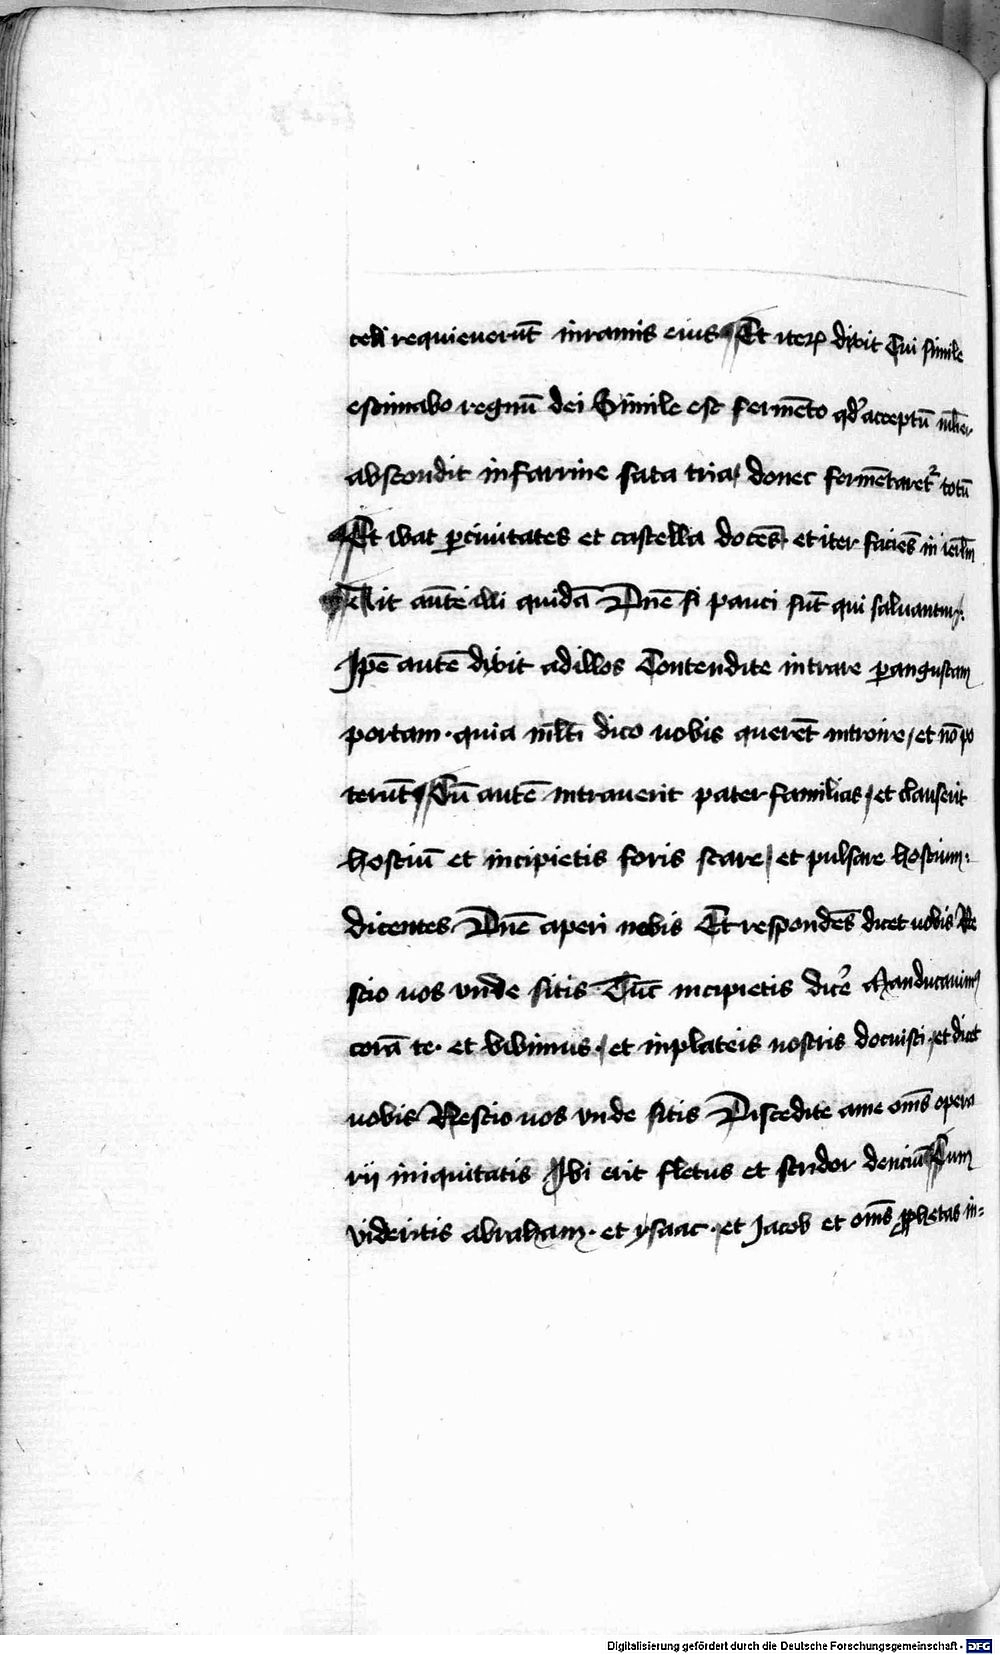 celi requieuerūt inramis eius Et iterꝝ dixit Cui simile
estimabo regnū dei Simile est fermēto qd̛ acceptū ml̄ier
abscondit infarrine sata tria donec fermētaretᷣ totū
Et ibat ꝑciuitates et castella docēs et iter faciēs in ierl̄m
Ait autē illi quidā Dn̄e si pauci sūt qui saluantur
Ip̄e autē dixit adillos Contendite intrare ꝑangustam
portam · quia ml̄ti dico uobis querēt introire / et nō po
terūt Cū autē intrauerit paterfamilias / et clauserit
hostiū et incipietis foris stare / et pulsare hostium ·
dicentes Dn̄e aperi nobis Et respondēs dicet uobis Ne
scio uos vnde sitis Tūc incipietis dic̄e Manducauimꝰ
corā te · et bibimus · / et inplateis nostris docuisti · / et dicet
uobis Nescio uos vnde sitis Discedite ame om̄s opera
rij iniquitatis Ibi erit fletus et stridor denciū Cum
videritis abraham · et ysaac · / et Jacob et om̄s ꝓphetas in=
Digitalisierung gefördert durch die Deutsche Forschungsgemeinschaft - DFG